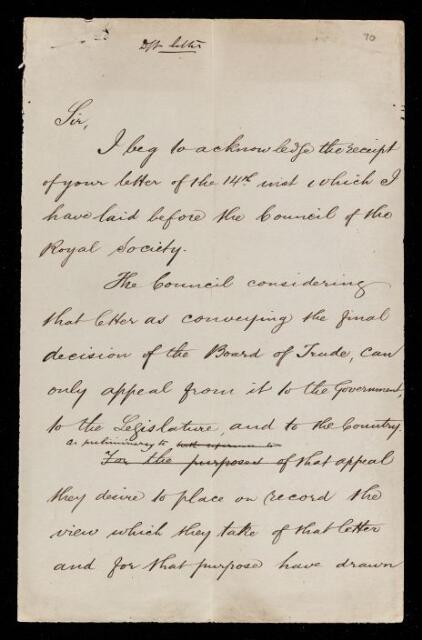 Dft letter
70
Sir,
I beg to acknowledge the receipt
of your letter of the 14th inst which I
have laid before the Council of the
Royal Society.
The Council considering
that letter as conveying the final
decision of the Board of Trade, can
only appeal from it to the Government,
to the Legislature, and to the Country.
as preliminary to with reference to
For the purposes of that appeal
they desire to place on record the
view which they take of that letter
and for that purpose have drawn